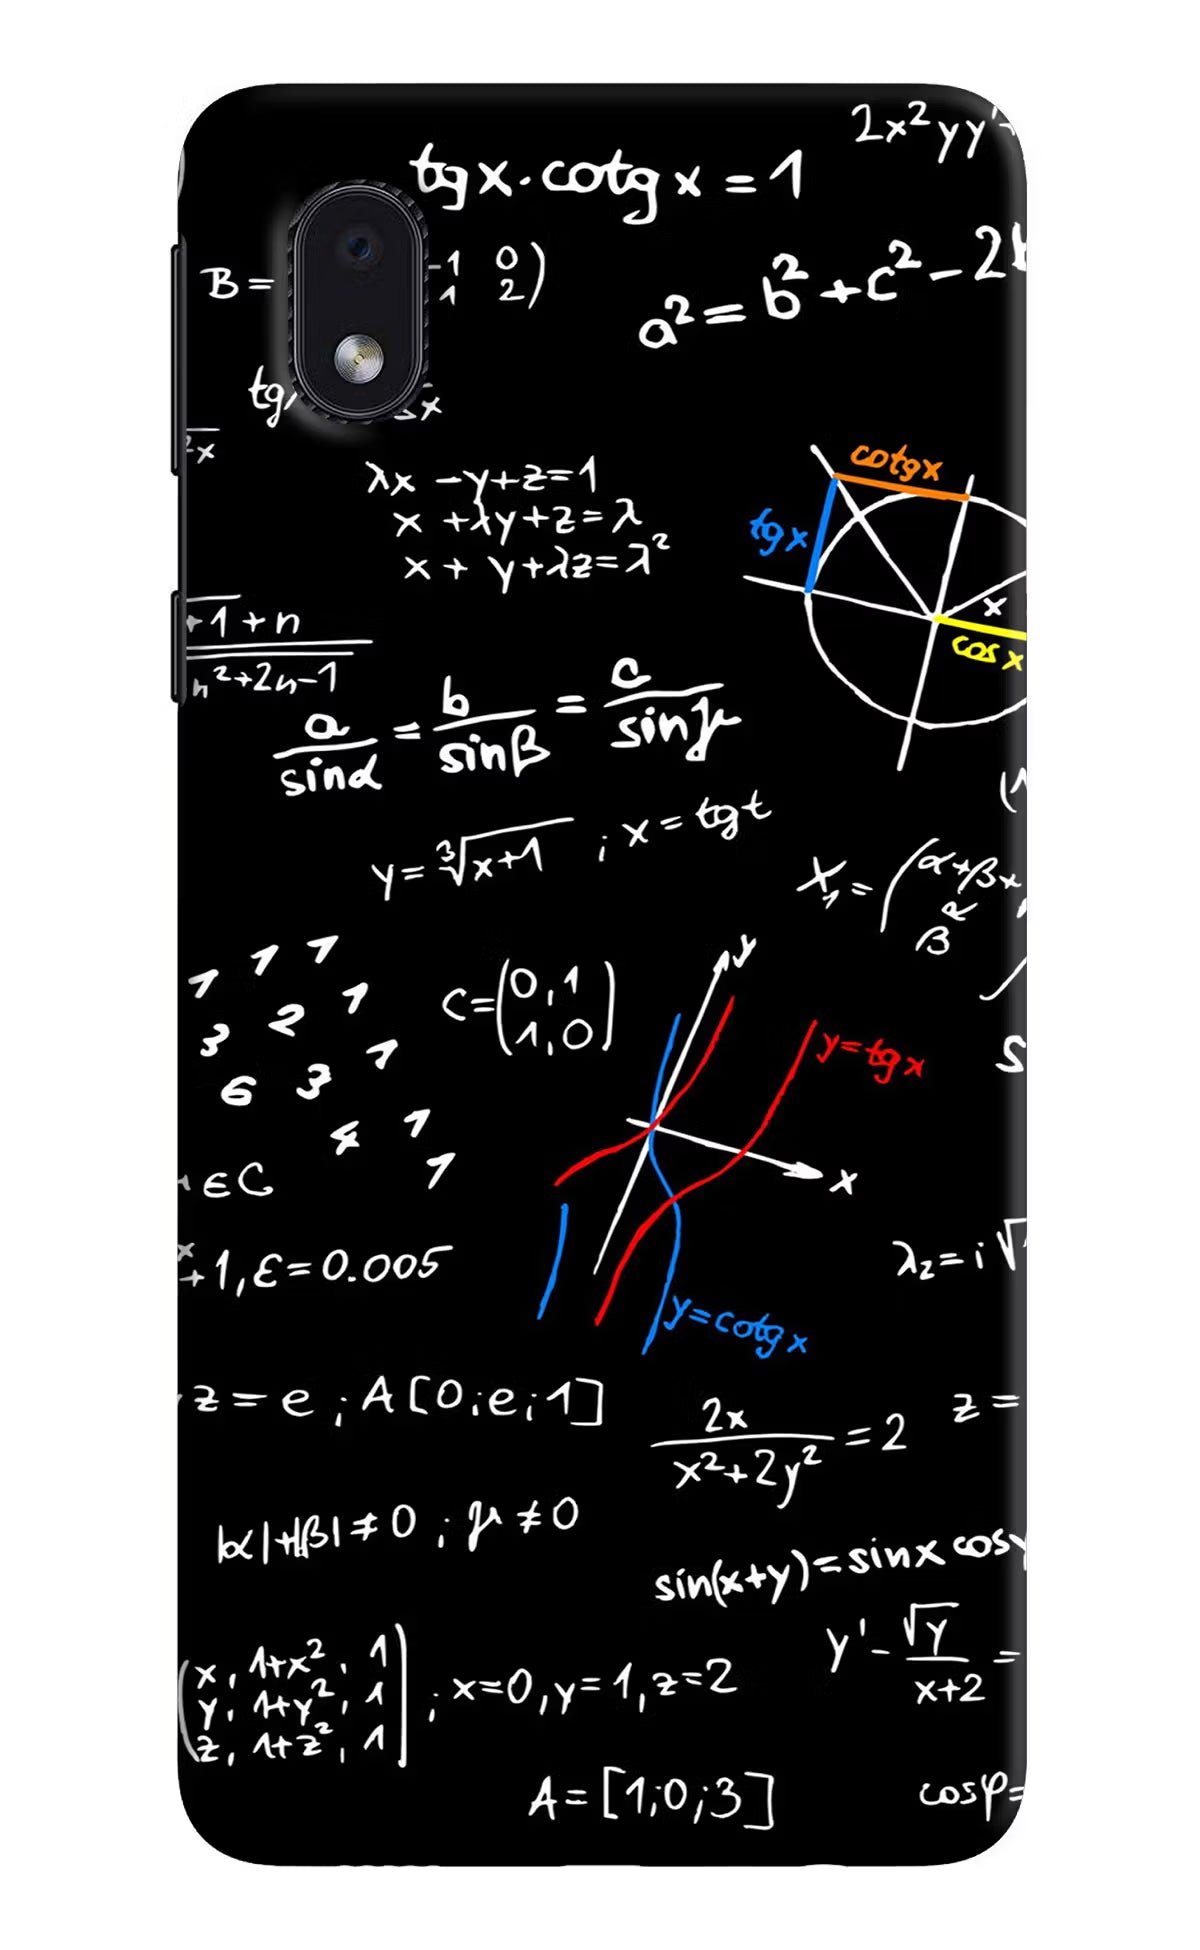 2x²yy'
tgx·cotgx=1
B= -1 0
1 2)
a²=b²+c²-2
tg
x
2x
λx-y+z=1
x+λy+z=λ
x+y+λz=λ²
cotgx
tgx
x
cosx
+1+n
n²+2n-1
a/sinα = b/sinβ = c/sinγ
y=∛x+1 ; x=tgt
X₁=(α+β+
β R
1 1 1
3 2 1
6 3 1
4 1
1
C=(0,1
1,0)
y
y=tgx
x
y=cotgx
S
∈C
+1,ε=0.005
λ₂=i√
z=e;A[0;e;1]
2x/x²+2y²=2
z=
|α|+|β|≠0;μ≠0
sin(x+y)=sinx cosy
y'-√y/x+2=
(x, 1+x², 1
y, 1+y², 1
z, 1+z², 1) ; x=0,y=1,z=2
A=[1;0;3]
cosφ=